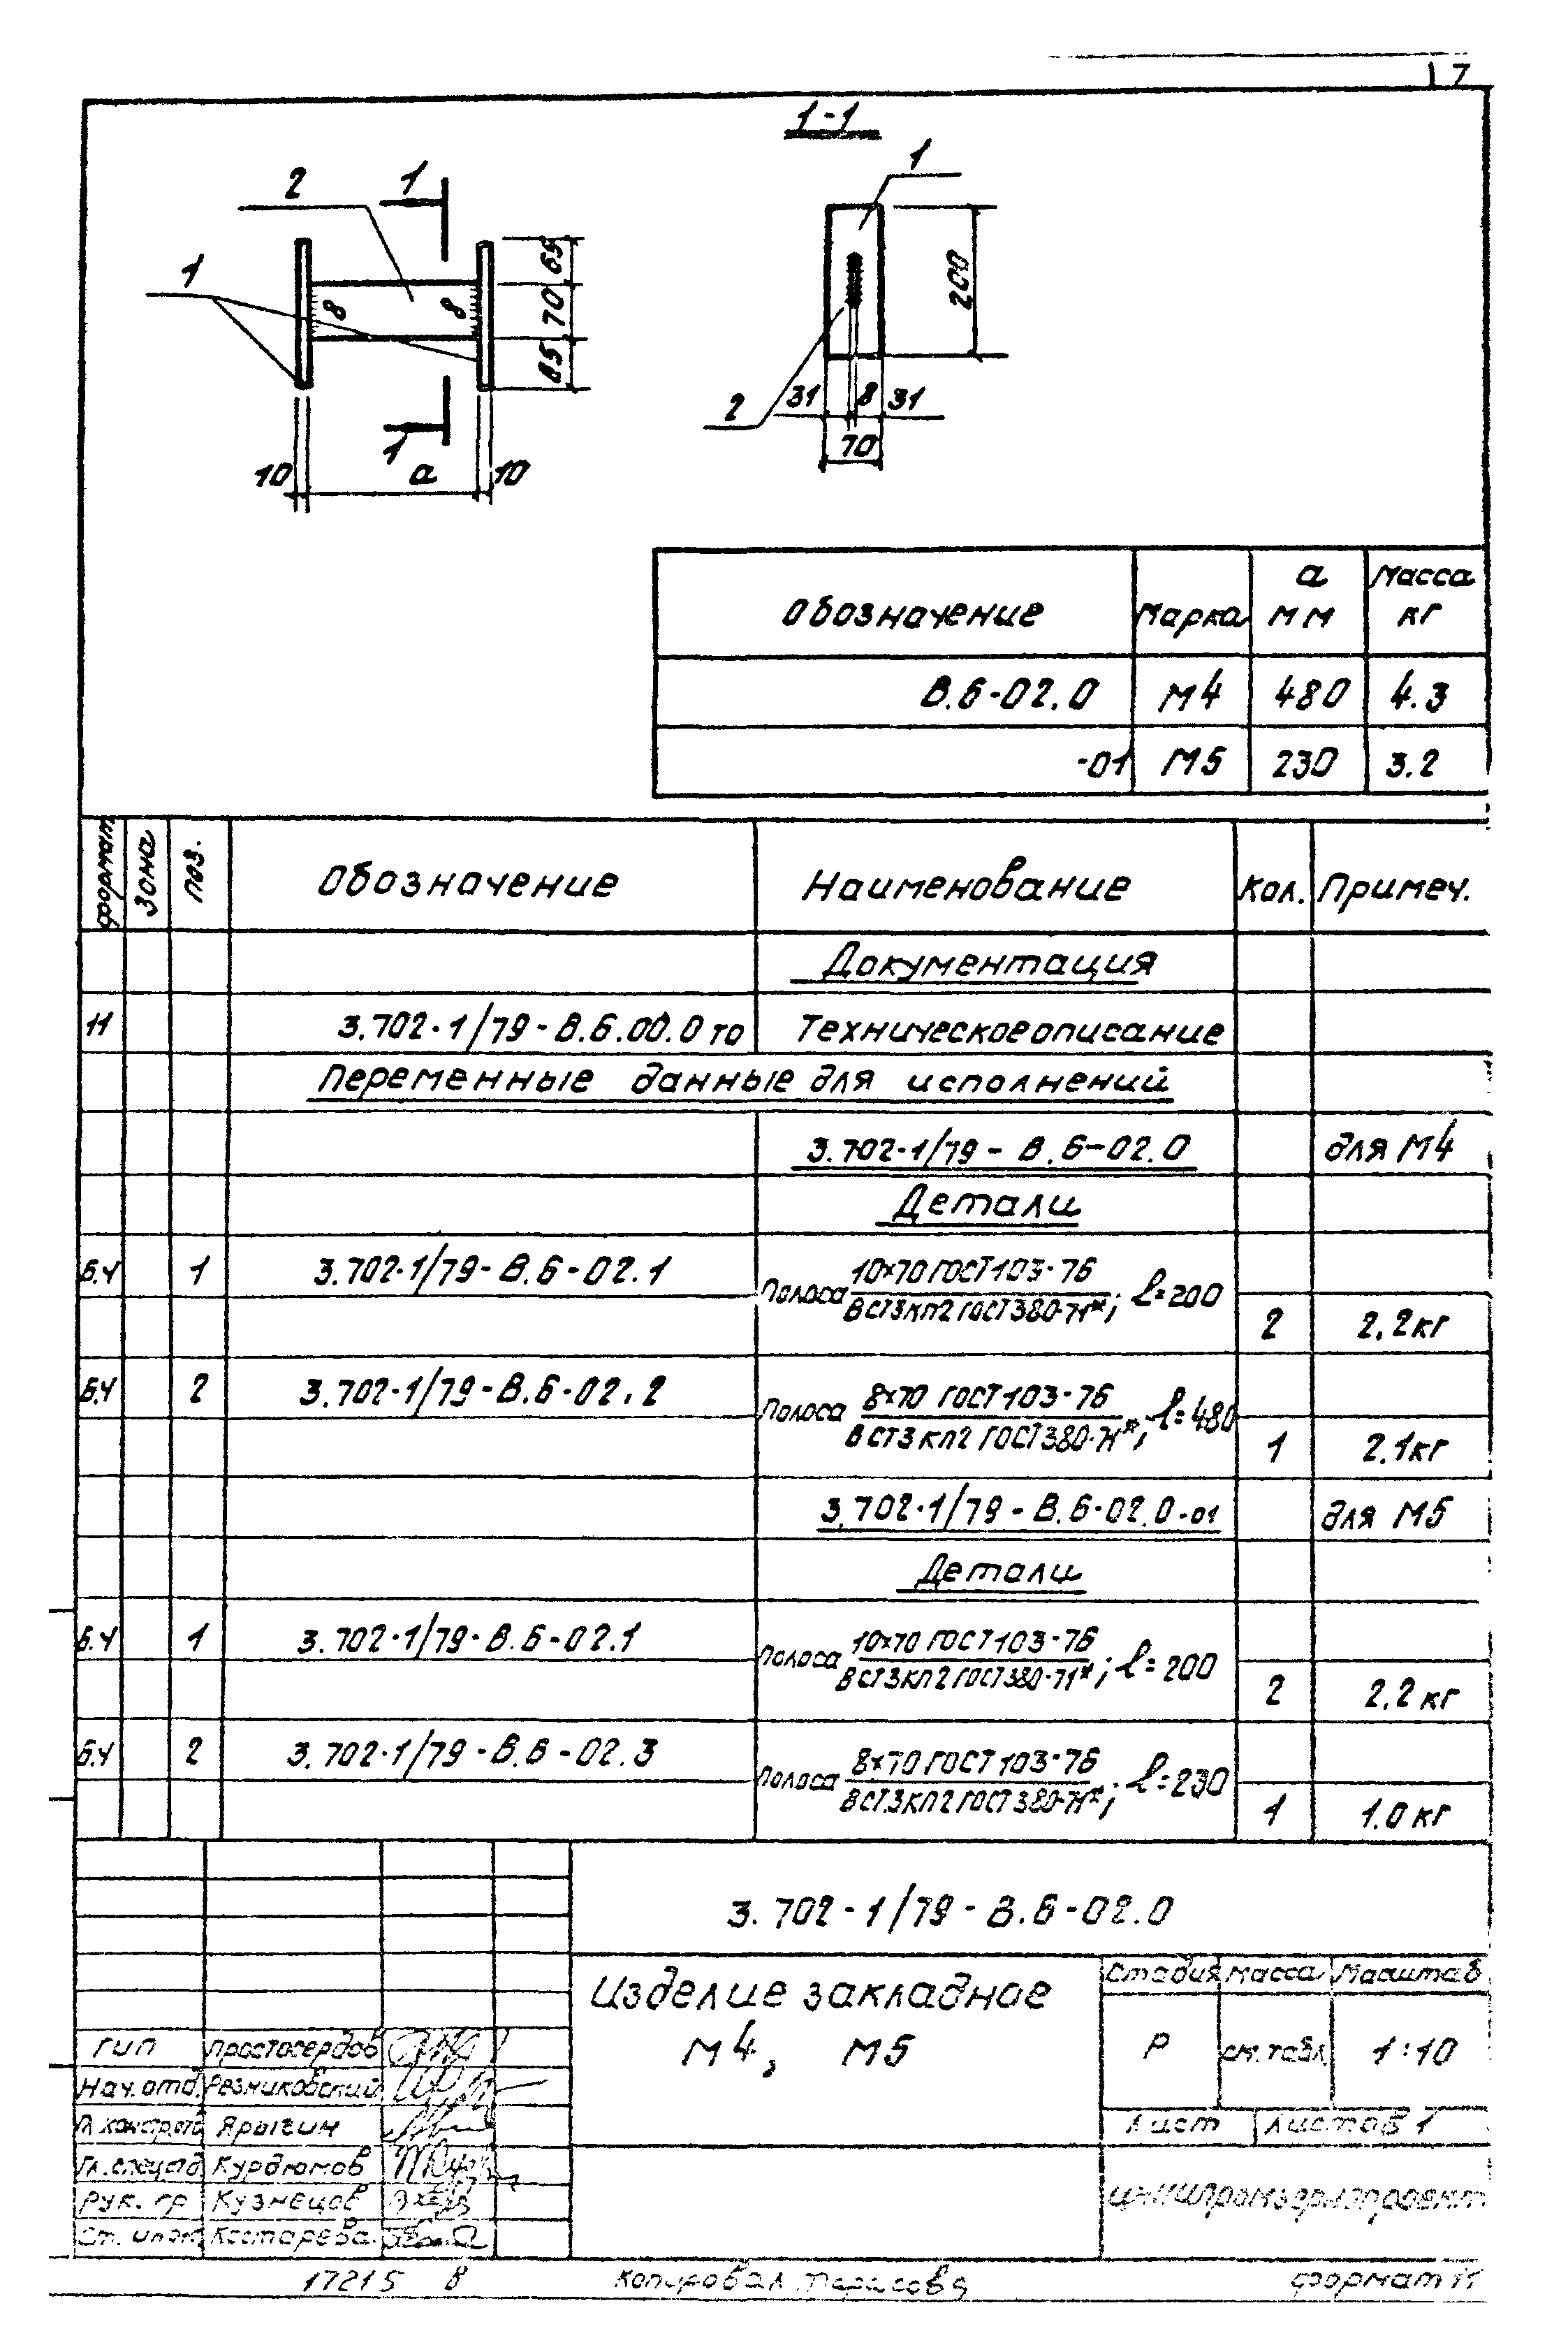 17
1-1
2 1 1
1
8 8
65
70
65
200
2
31 8 31
70
1
10 a 10
Обозначение Марка а мм Масса кг
В.6-02.0 М4 480 4.3
-01 М5 230 3.2
Формат Зона Поз. Обозначение Наименование Кол. Примеч.
Документация
11 3.702-1/79-В.6.00.0 ТО Техническое описание
Переменные данные для исполнений
3.702-1/79-В.6-02.0 для М4
Детали
Б.Ч 1 3.702-1/79-В.6-02.1 Полоса 10×70 ГОСТ 103-76
ВСТ3КП2 ГОСТ 380-71*; ℓ=200
2 2,2кг
Б.Ч 2 3.702-1/79-В.6-02.2 Полоса 8×70 ГОСТ 103-76
ВСТ3КП2 ГОСТ 380-71*; ℓ=480
1 2.1кг
3.702-1/79-В.6-02.0-01 для М5
Детали
Б.Ч 1 3.702-1/79-В.6-02.1 Полоса 10×70 ГОСТ 103-76
ВСТ3КП2 ГОСТ 380-71*; ℓ=200
2 2.2кг
Б.Ч 2 3.702-1/79-В.6-02.3 Полоса 8×70 ГОСТ 103-76
ВСТ.3КП2 ГОСТ 380-71*; ℓ=230
1 1.0кг
3.702-1/79-В.6-02.0
Изделие закладное
М4, М5
Стадия Масса Масштаб
Р см. табл. 1:10
Лист Листов 1
ГИП Простосердов
Нач. отд. Резниковский
Гл. констр. отд Ярыгин
Гл. спец отд Курдюмов
Рук. гр Кузнецов
Ст. инж. Костарева
ЦНИИпромзернопроект
17215 8 Копировал Тарасова формат 11